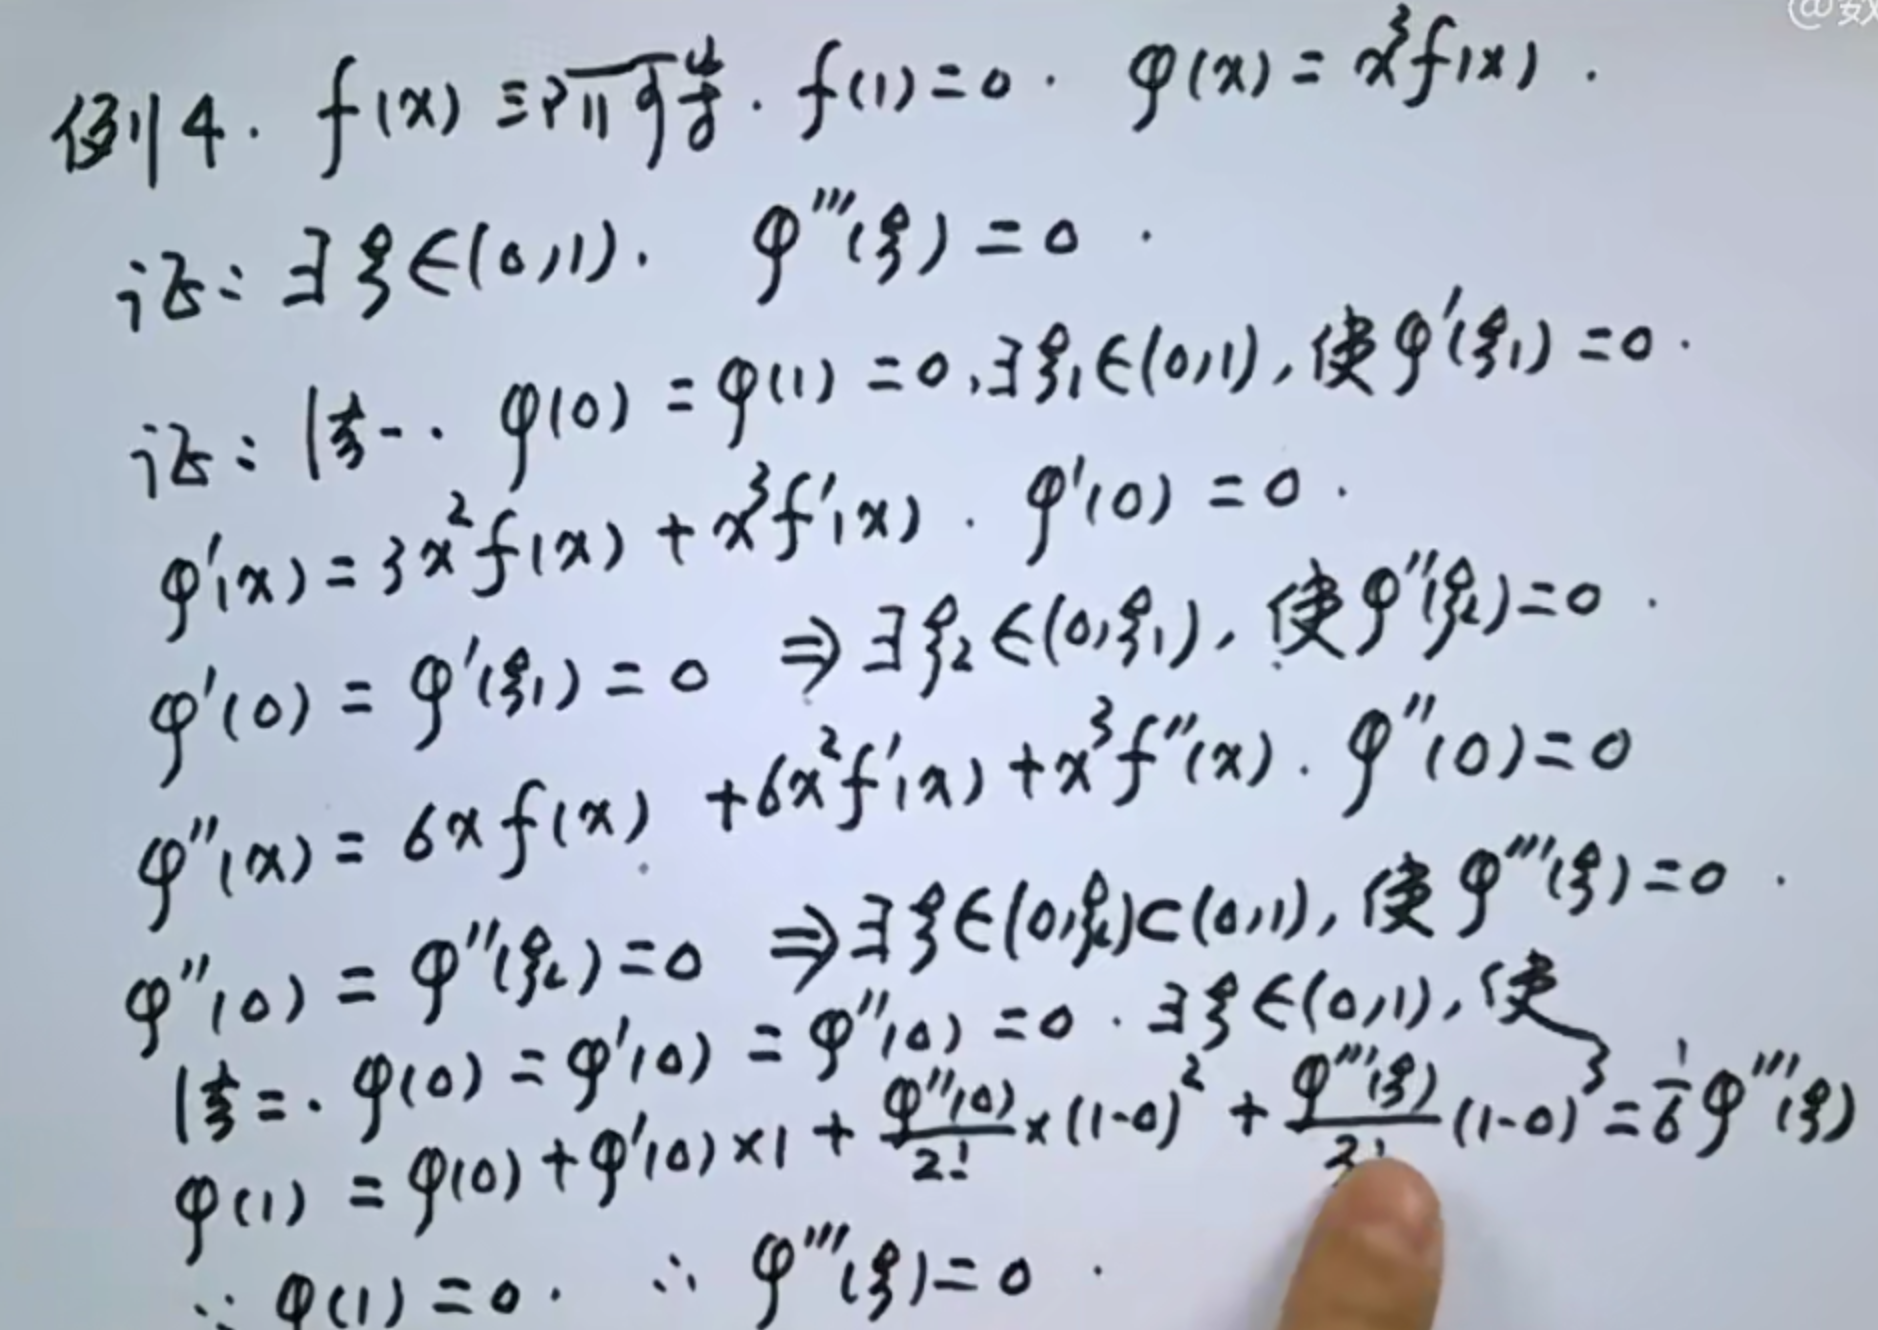 @数
例4. f(x)三阶可导. f(1)=0. φ(x)=x³f(x).
证: ∃ξ∈(0,1). φ'''(ξ)=0.
证: 法一. φ(0)=φ(1)=0,∃ξ₁∈(0,1),使φ'(ξ₁)=0.
φ'(x)=3x²f(x)+x³f'(x). φ'(0)=0.
φ'(0)=φ'(ξ₁)=0 ⇒∃ξ₂∈(0,ξ₁),使φ''(ξ₂)=0.
φ''(x)=6xf(x)+6x²f'(x)+x³f''(x). φ''(0)=0
φ''(0)=φ''(ξ₂)=0 ⇒∃ξ∈(0,ξ₂)⊂(0,1),使φ'''(ξ)=0.
法二. φ(0)=φ'(0)=φ''(0)=0. ∃ξ∈(0,1),使
φ(1)=φ(0)+φ'(0)×1+φ''(0)/2!×(1-0)²+φ'''(ξ)/3!(1-0)³=1/6φ'''(ξ)
∵φ(1)=0. ∴φ'''(ξ)=0.